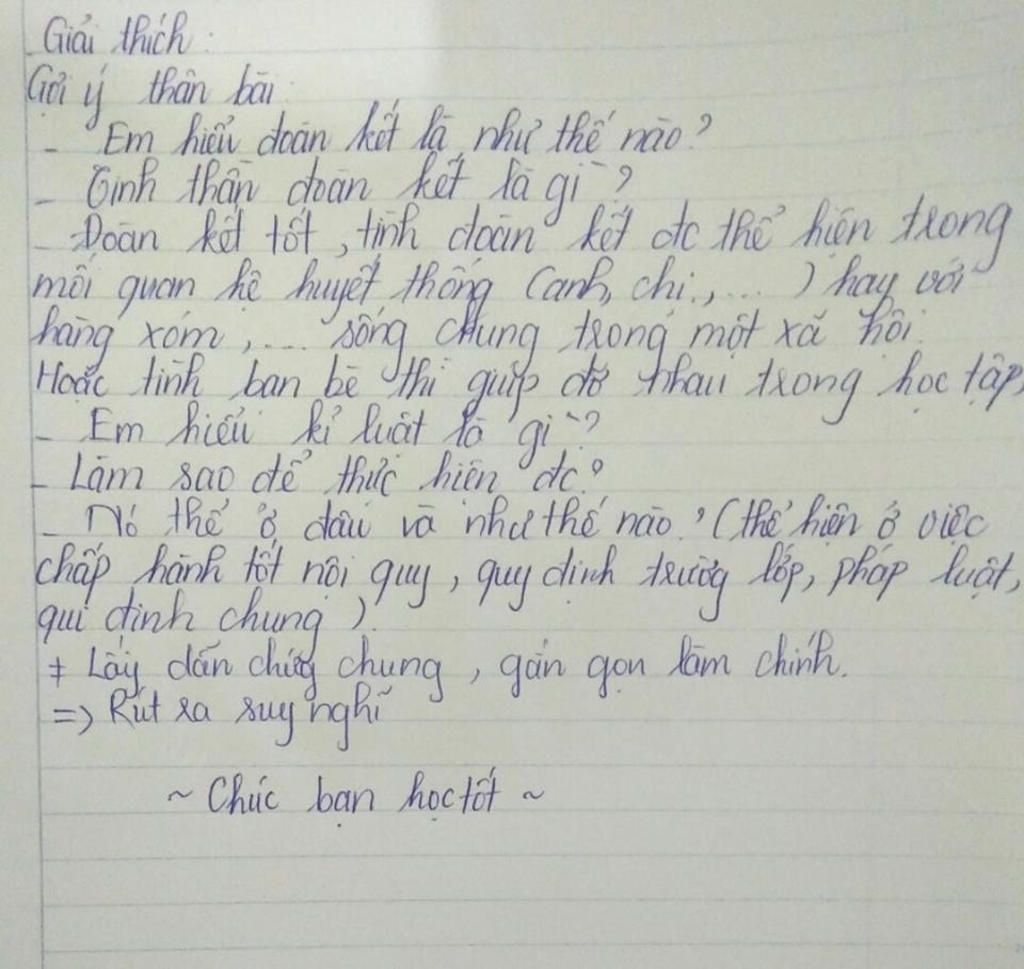 Giải thích:
Gợi ý thân bài:
- Em hiểu đoàn kết là như thế nào?
- Tinh thần đoàn kết là gì?
- Đoàn kết tốt, tình đoàn kết đc thể hiện trong
mối quan hệ huyết thống (anh, chị, ... ) hay với
hàng xóm, ... sống chung trong một xã hội.
Hoặc tình bạn bè thì giúp đỡ nhau trong học tập,
- Em hiểu kỉ luật là gì?
- Làm sao để thực hiện đc?
- Nó thể ở đâu và như thế nào? (thể hiện ở việc
chấp hành tốt nội quy, quy định trường lớp, pháp luật,
qui định chung)
+ Lấy dẫn chứng chung, gắn gọn làm chính.
=> Rút ra suy nghĩ
~ Chúc bạn học tốt ~